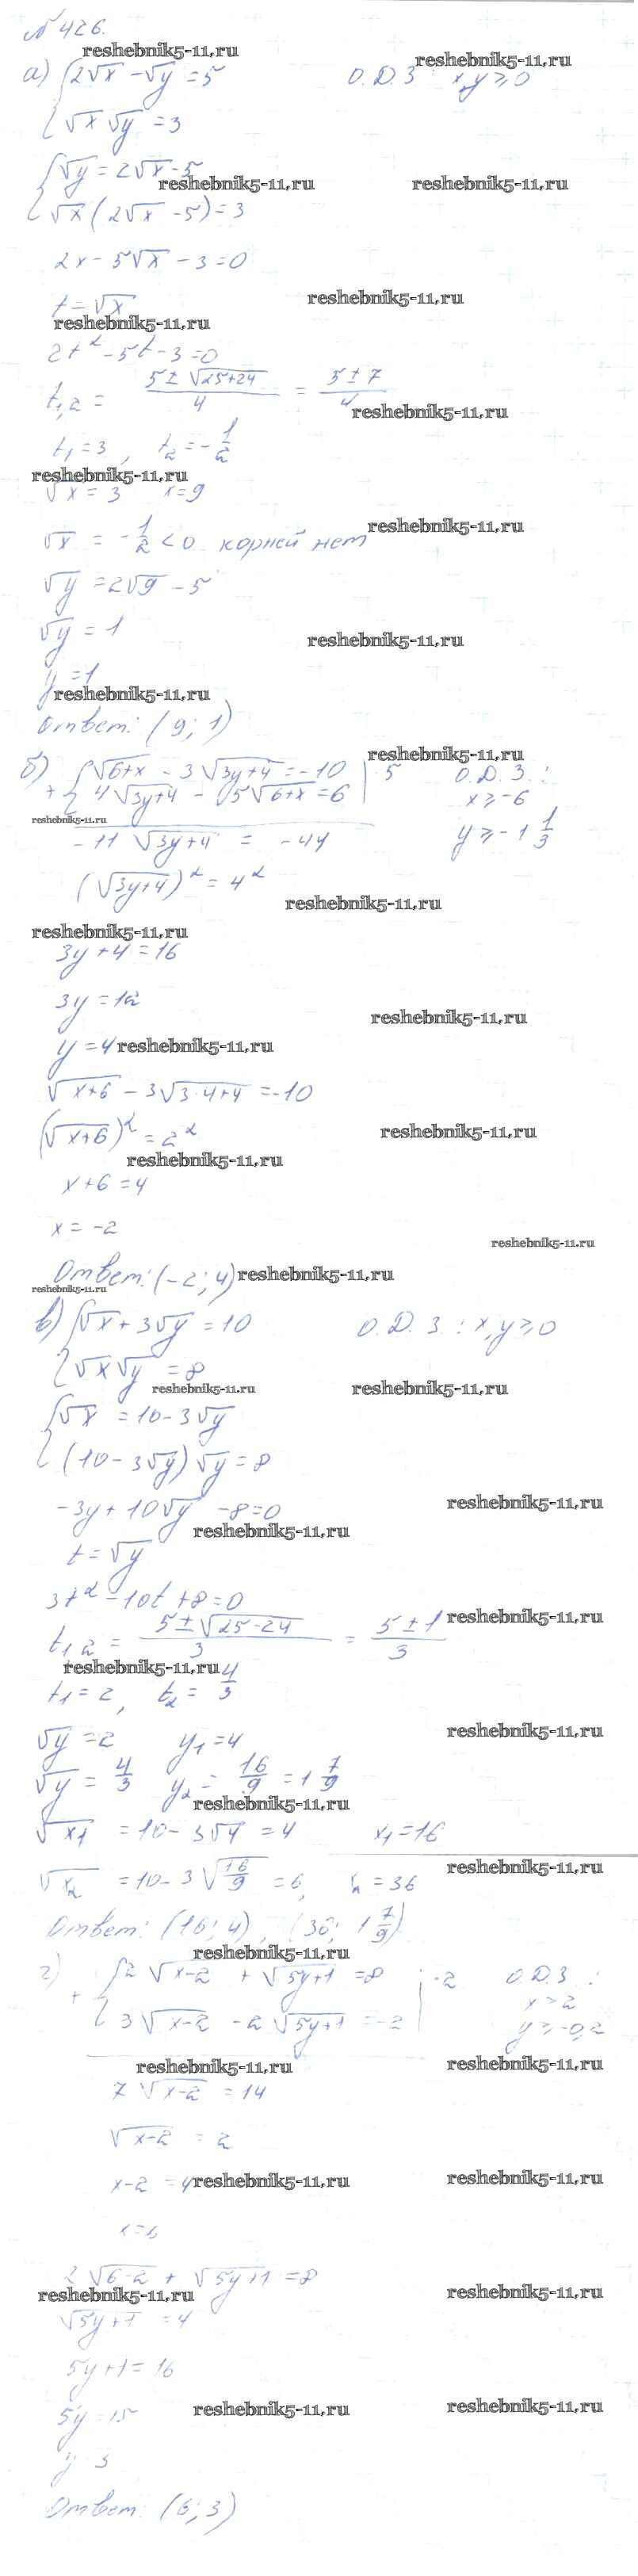 № 426.
reshebnik5-11.ru
а) {2√x - √y = 5   О.Д.З : x,y ≥ 0
reshebnik5-11.ru
{√x √y = 3
{√y = 2√x - 5
reshebnik5-11.ru reshebnik5-11.ru
{√x (2√x - 5) = 3
2x - 5√x - 3 = 0
t = √x
reshebnik5-11.ru
reshebnik5-11.ru
2t² - 5t - 3 = 0
t₁,₂ = (5 ± √(25+24))/4 = (5 ± 7)/4
reshebnik5-11.ru
t₁ = 3, t₂ = -1/2
reshebnik5-11.ru
√x = 3   x = 9
reshebnik5-11.ru
√x = -1/2 < 0 корней нет
√y = 2√9 - 5
√y = 1
reshebnik5-11.ru
y = 1
reshebnik5-11.ru
Ответ: (9; 1)
reshebnik5-11.ru
б) {√(6+x) - 3√(3y+4) = -10 | ·5   О.Д.З. :
+ {4√(3y+4) - 5√(6+x) = 6 |   x ≥ -6
reshebnik5-11.ru
-11 √(3y+4) = -44   y ≥ -1 1/3
(√(3y+4))² = 4²
reshebnik5-11.ru
reshebnik5-11.ru
3y + 4 = 16
3y = 12
reshebnik5-11.ru
y = 4
reshebnik5-11.ru
√(x+6) - 3√(3·4+4) = -10
(√(x+6))² = 2²
reshebnik5-11.ru
reshebnik5-11.ru
x + 6 = 4
x = -2
reshebnik5-11.ru
Ответ: (-2; 4)
reshebnik5-11.ru
reshebnik5-11.ru
в) {√x + 3√y = 10   О.Д.З. : x,y ≥ 0
{√x √y = 8
reshebnik5-11.ru reshebnik5-11.ru
{√x = 10 - 3√y
{(10 - 3√y) √y = 8
-3y + 10√y - 8 = 0
reshebnik5-11.ru
reshebnik5-11.ru
t = √y
3t² - 10t + 8 = 0
t₁,₂ = (5 ± √(25-24))/3 = (5 ± 1)/3
reshebnik5-11.ru
reshebnik5-11.ru
t₁ = 2, t₂ = 4/3
√y = 2   y₁ = 4
reshebnik5-11.ru
√y = 4/3   y₂ = 16/9 = 1 7/9
reshebnik5-11.ru
√x₁ = 10 - 3√4 = 4   x₁ = 16
√x₂ = 10 - 3√(16/9) = 6, x₂ = 36
reshebnik5-11.ru
Ответ: (16; 4), (36; 1 7/9)
reshebnik5-11.ru
г) {2 √(x-2) + √(5y+1) = 8 | ·2   О.Д.З :
+ {3 √(x-2) - 2 √(5y+1) = -2 |   x ≥ 2
y ≥ -0,2
reshebnik5-11.ru reshebnik5-11.ru
7 √(x-2) = 14
√(x-2) = 2
x - 2 = 4
reshebnik5-11.ru reshebnik5-11.ru
x = 6
2 √(6-2) + √(5y+1) = 8
reshebnik5-11.ru reshebnik5-11.ru
√(5y+1) = 4
5y + 1 = 16
5y = 15
reshebnik5-11.ru reshebnik5-11.ru
y 3
Ответ: (6; 3)